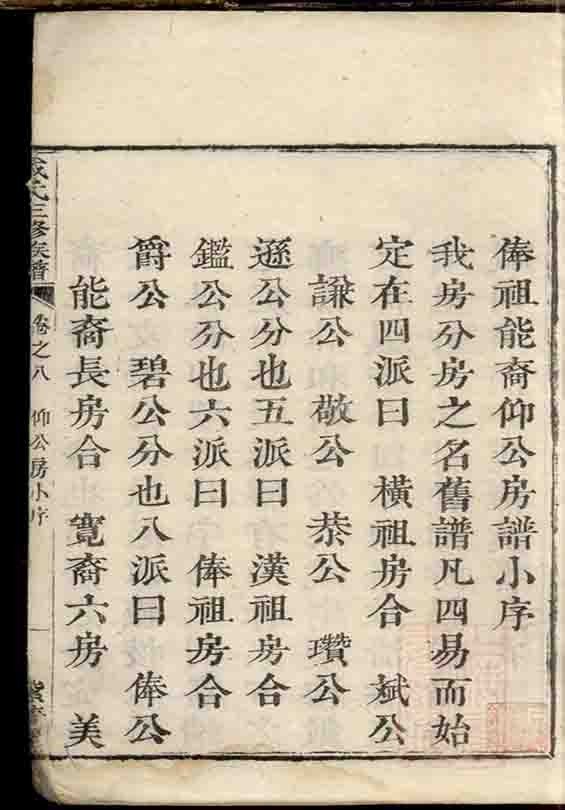 俸祖能裔仰公房譜小序
我房分房之名舊譜凡四易而始
定在四派曰 橫祖房合 斌公
謙公 敬公 恭公 瓚公
遜公分也五派曰 漢祖房合
鑑公分也六派曰 俸祖房合
爵公 碧公分也八派曰 俸公
能裔長房合 寬裔六房 美
氏三修族譜
卷之八 仰公房小序
一